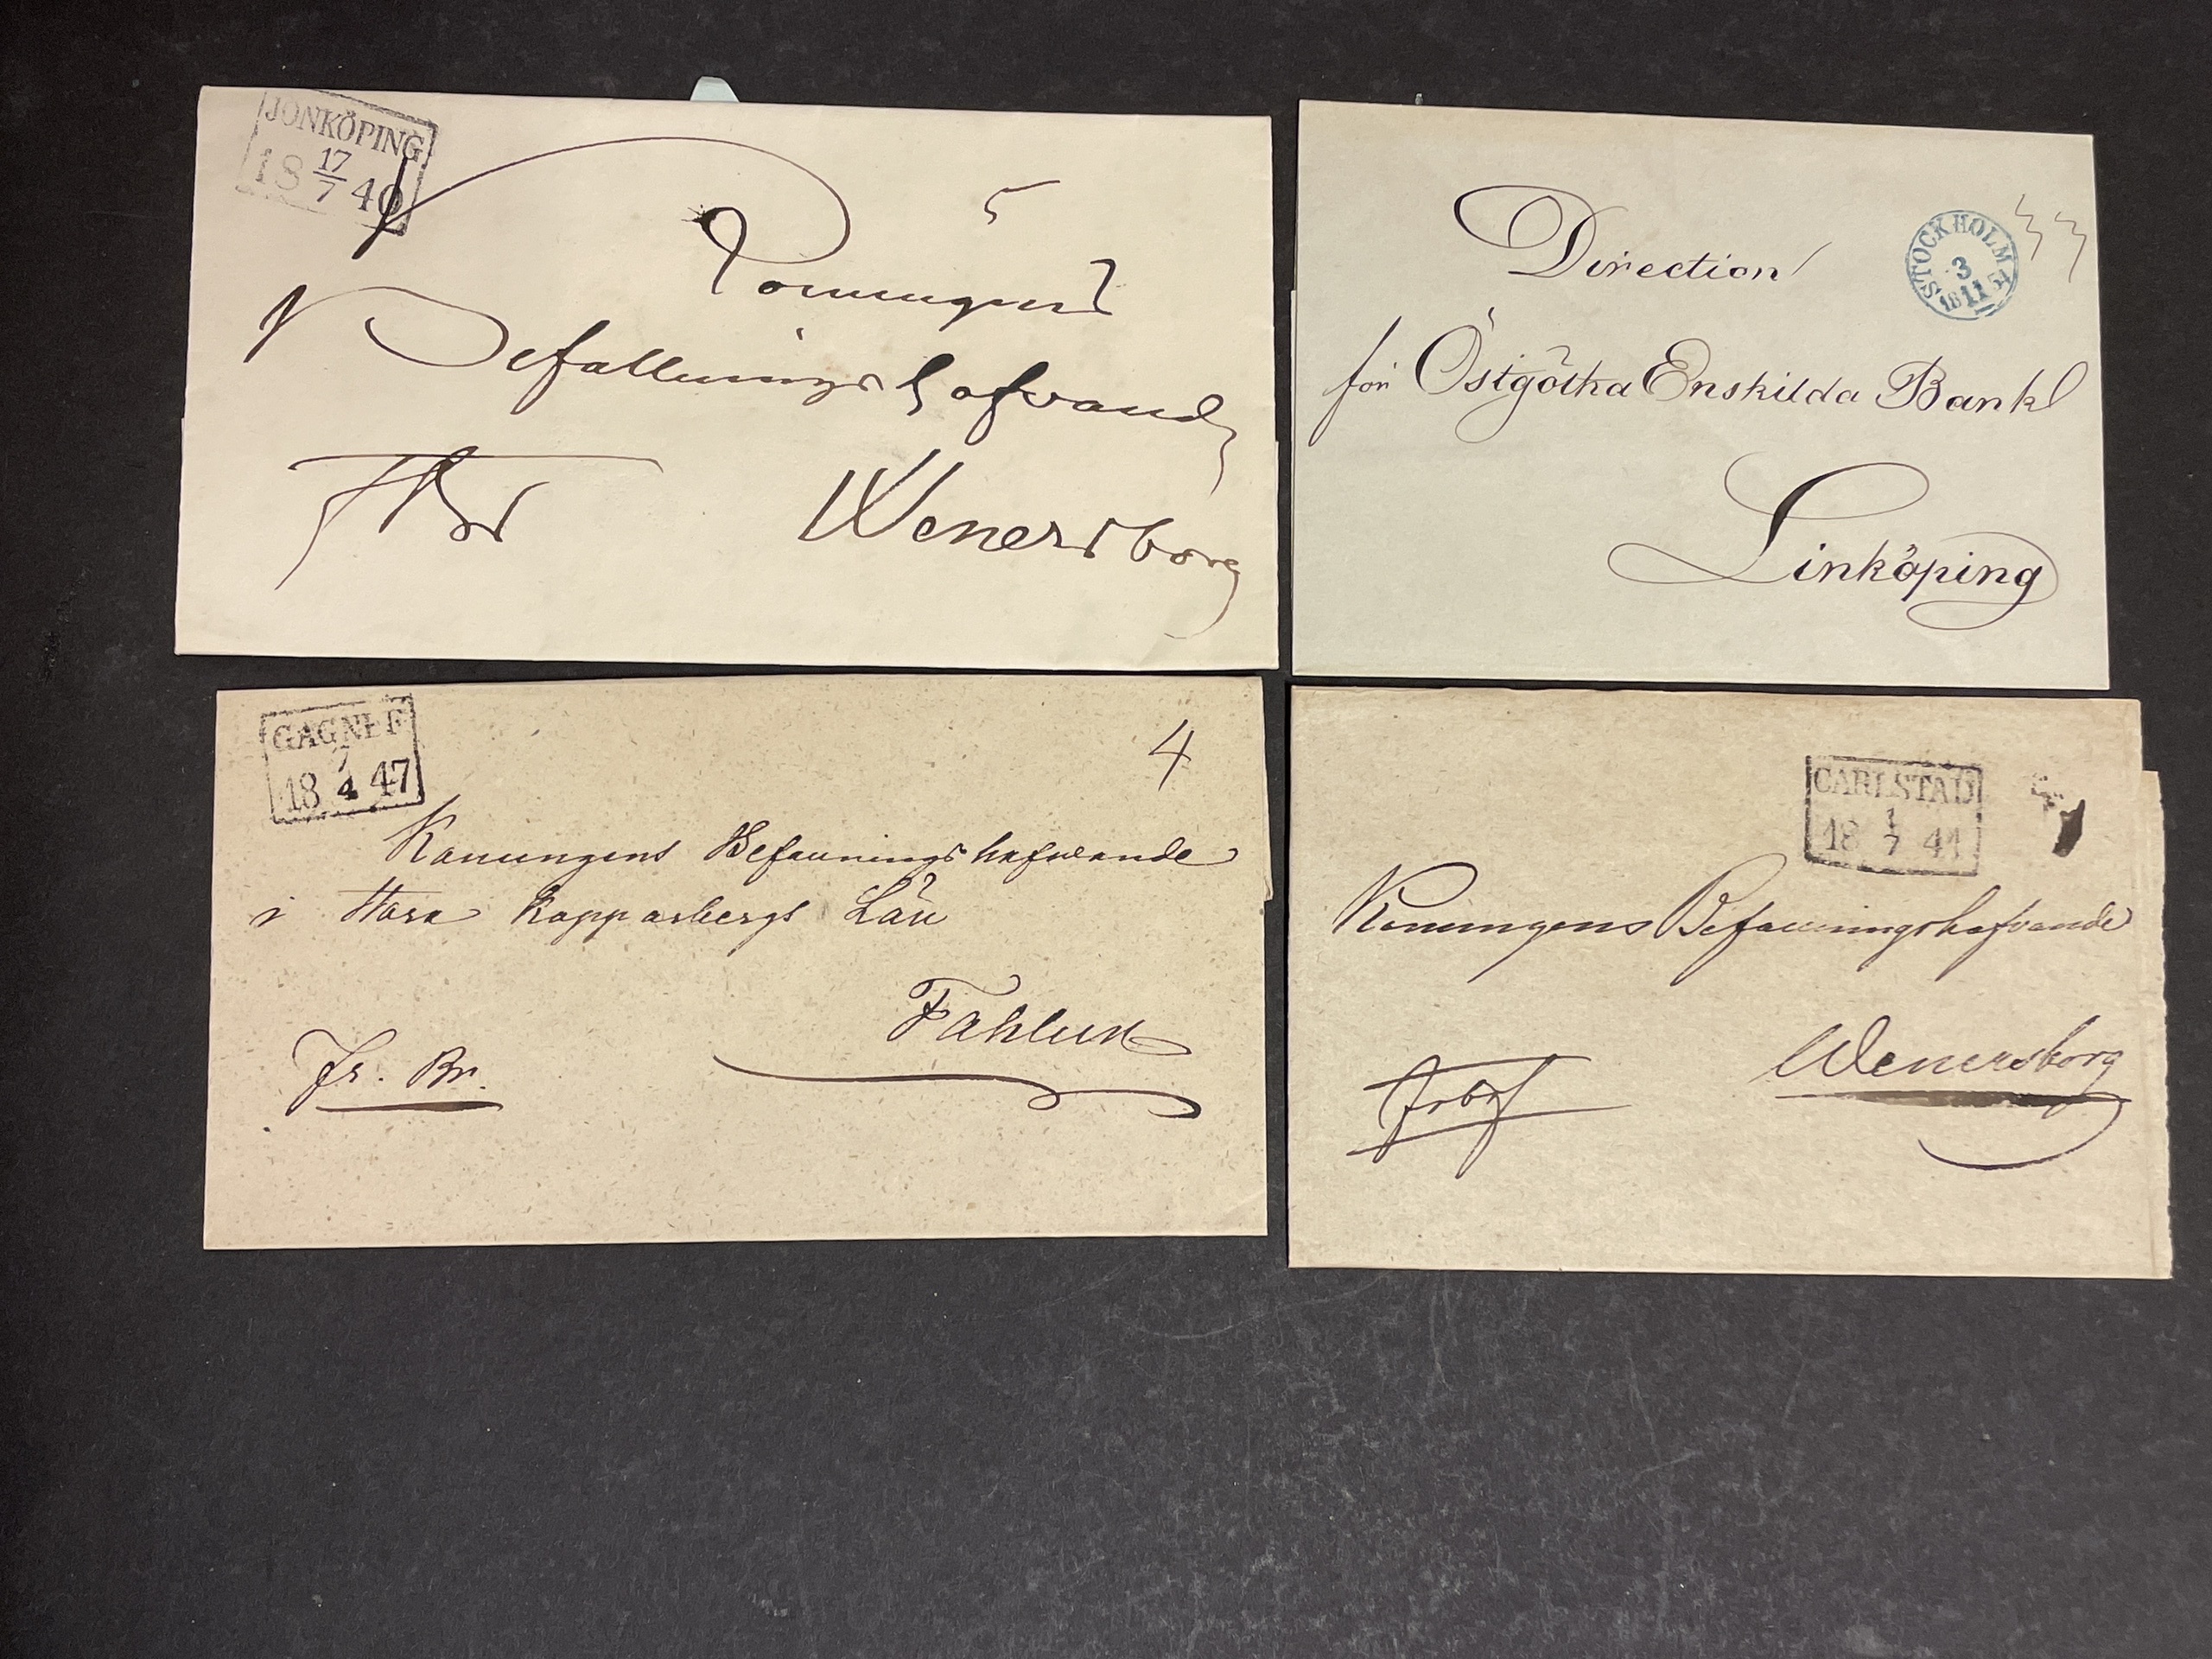 JÖNKÖPING
18 17/7 40
5
Konungens
Befallningshafvande
Wenersborg
STOCKHOLM
3
18 11 54
Direction
för Östgötha Enskilda Bank
Linköping
GAGNEF
7
18 4 47
4
Konungens Befallningshafvande
i Stora Kopparbergs Län
Fahlun
Fr. Br.
CARLSTAD
1
18 7 41
Konungens Befallningshafvande
Wenersborg